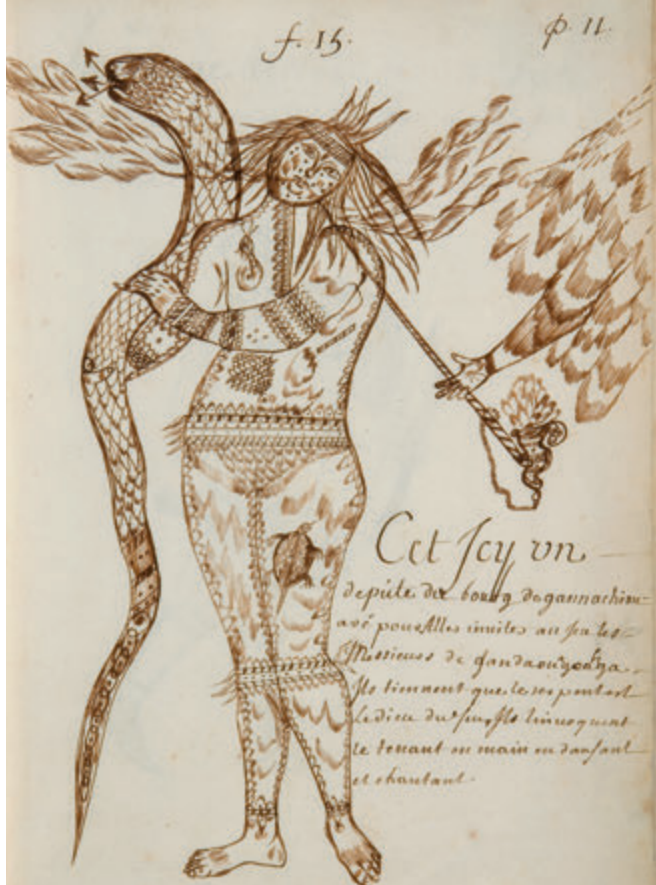 f. 15.
p. 11.
Cet Icy un
depúte du bourg de gannachiou-
avé pour aller inuiter au jeu les
Messieurs de gandaouagoahga.
Ils tiennent que le serpent est
Le dieu du feu Ils Linuoquent
le tenant en main en dansant
et chantant.